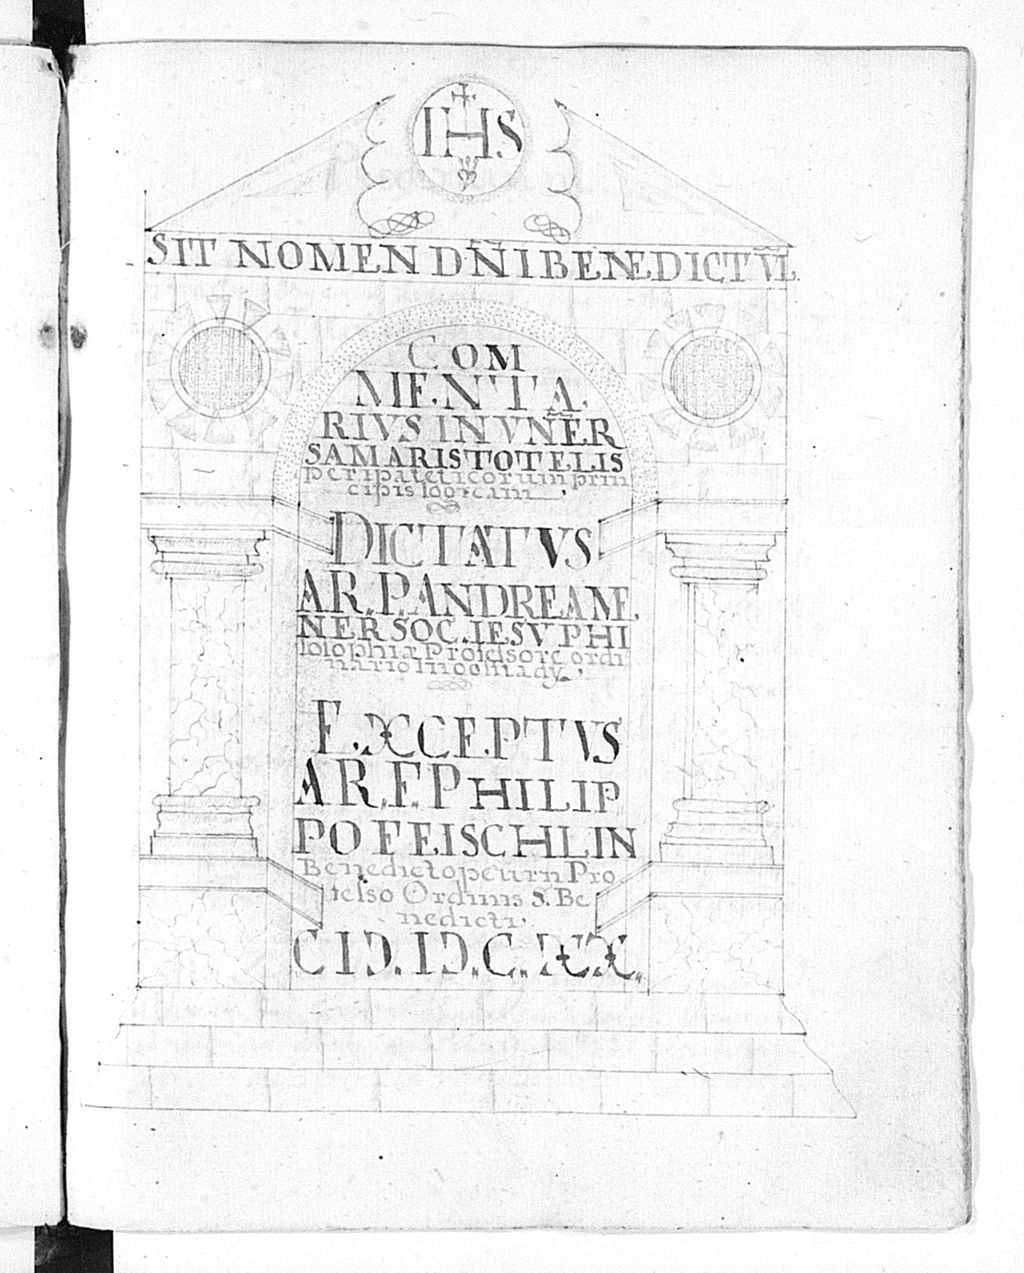 IHS
SIT NOMEN DÑI BENEDICTVM.
COM
MENTA
RIVS IN VNĒR
SAM ARISTOTELIS
peripateticorum prin
cipis logicam.
DICTATVS
A R. P. ANDREA ME.
NER SOC. IESV PHI
losophiæ Professore ordi
nario
EXCEPTVS
A R. F. PHILIP
PO FEISCHLIN
Benedictopeurn Pro
fesso Ordinis S. Be
nedicti.
CIↃ. IↃ. C. XX.